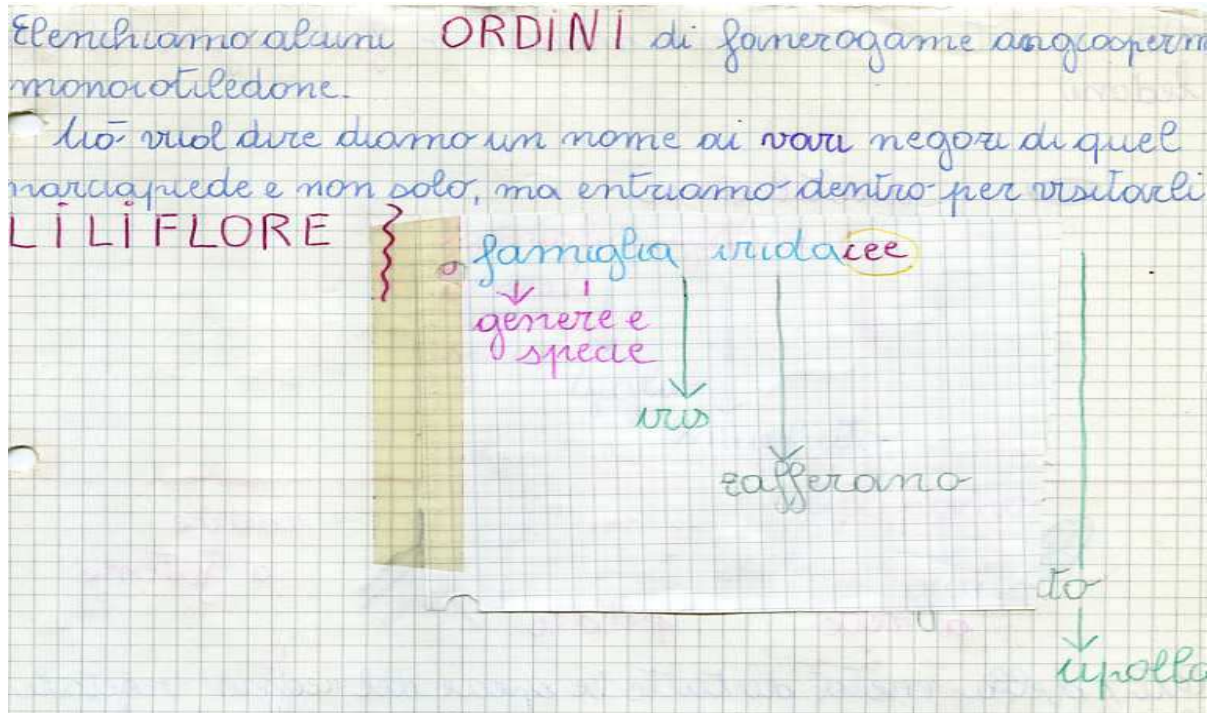 Elenchiamo alcuni ORDINI di fanerogame angiosperm
monocotiledone.
Ciò vuol dire diamo un nome ai vari negozi di quel
marciapiede e non solo, ma entriamo dentro per visitarli
LILIFLORE
famiglia iridacee
genere e
specie
iris
zafferano
to
cipolla